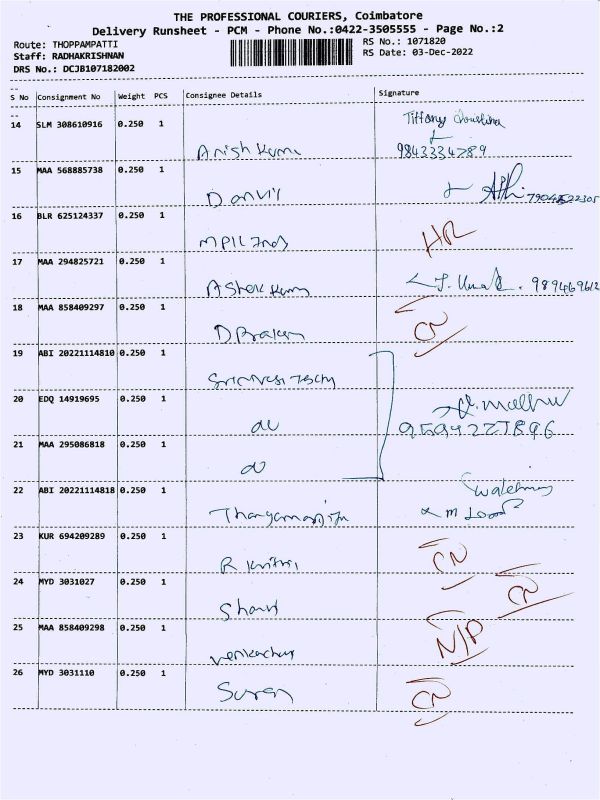 THE PROFESSIONAL COURIERS, Coimbatore
Delivery Runsheet - PCM - Phone No.:0422-3505555 - Page No.:2
Route: THOPPAMPATTI RS No.: 1071820
Staff: RADHAKRISHNAN RS Date: 03-Dec-2022
DRS No.: DCJB107182002
--
S No Consignment No Weight PCS Consignee Details Signature
--
14 SLM 308610916 0.250 1 Tiffany
Anish Kumar 9843334789
15 MAA 568885738 0.250 1
16 BLR 625124337 0.250 1 HR
17 MAA 294825721 0.250 1
Ashok Kumar
18 MAA 858409297 0.250 1 CN
19 ABI 20221114810 0.250 1
20 EDQ 14919695 0.250 1
do
21 MAA 295086818 0.250 1
do
22 ABI 20221114818 0.250 1
23 KUR 694209289 0.250 1 CN
24 MYD 3031027 0.250 1 CN
25 MAA 858409298 0.250 1 N/P
26 MYD 3031110 0.250 1 CN
Suren